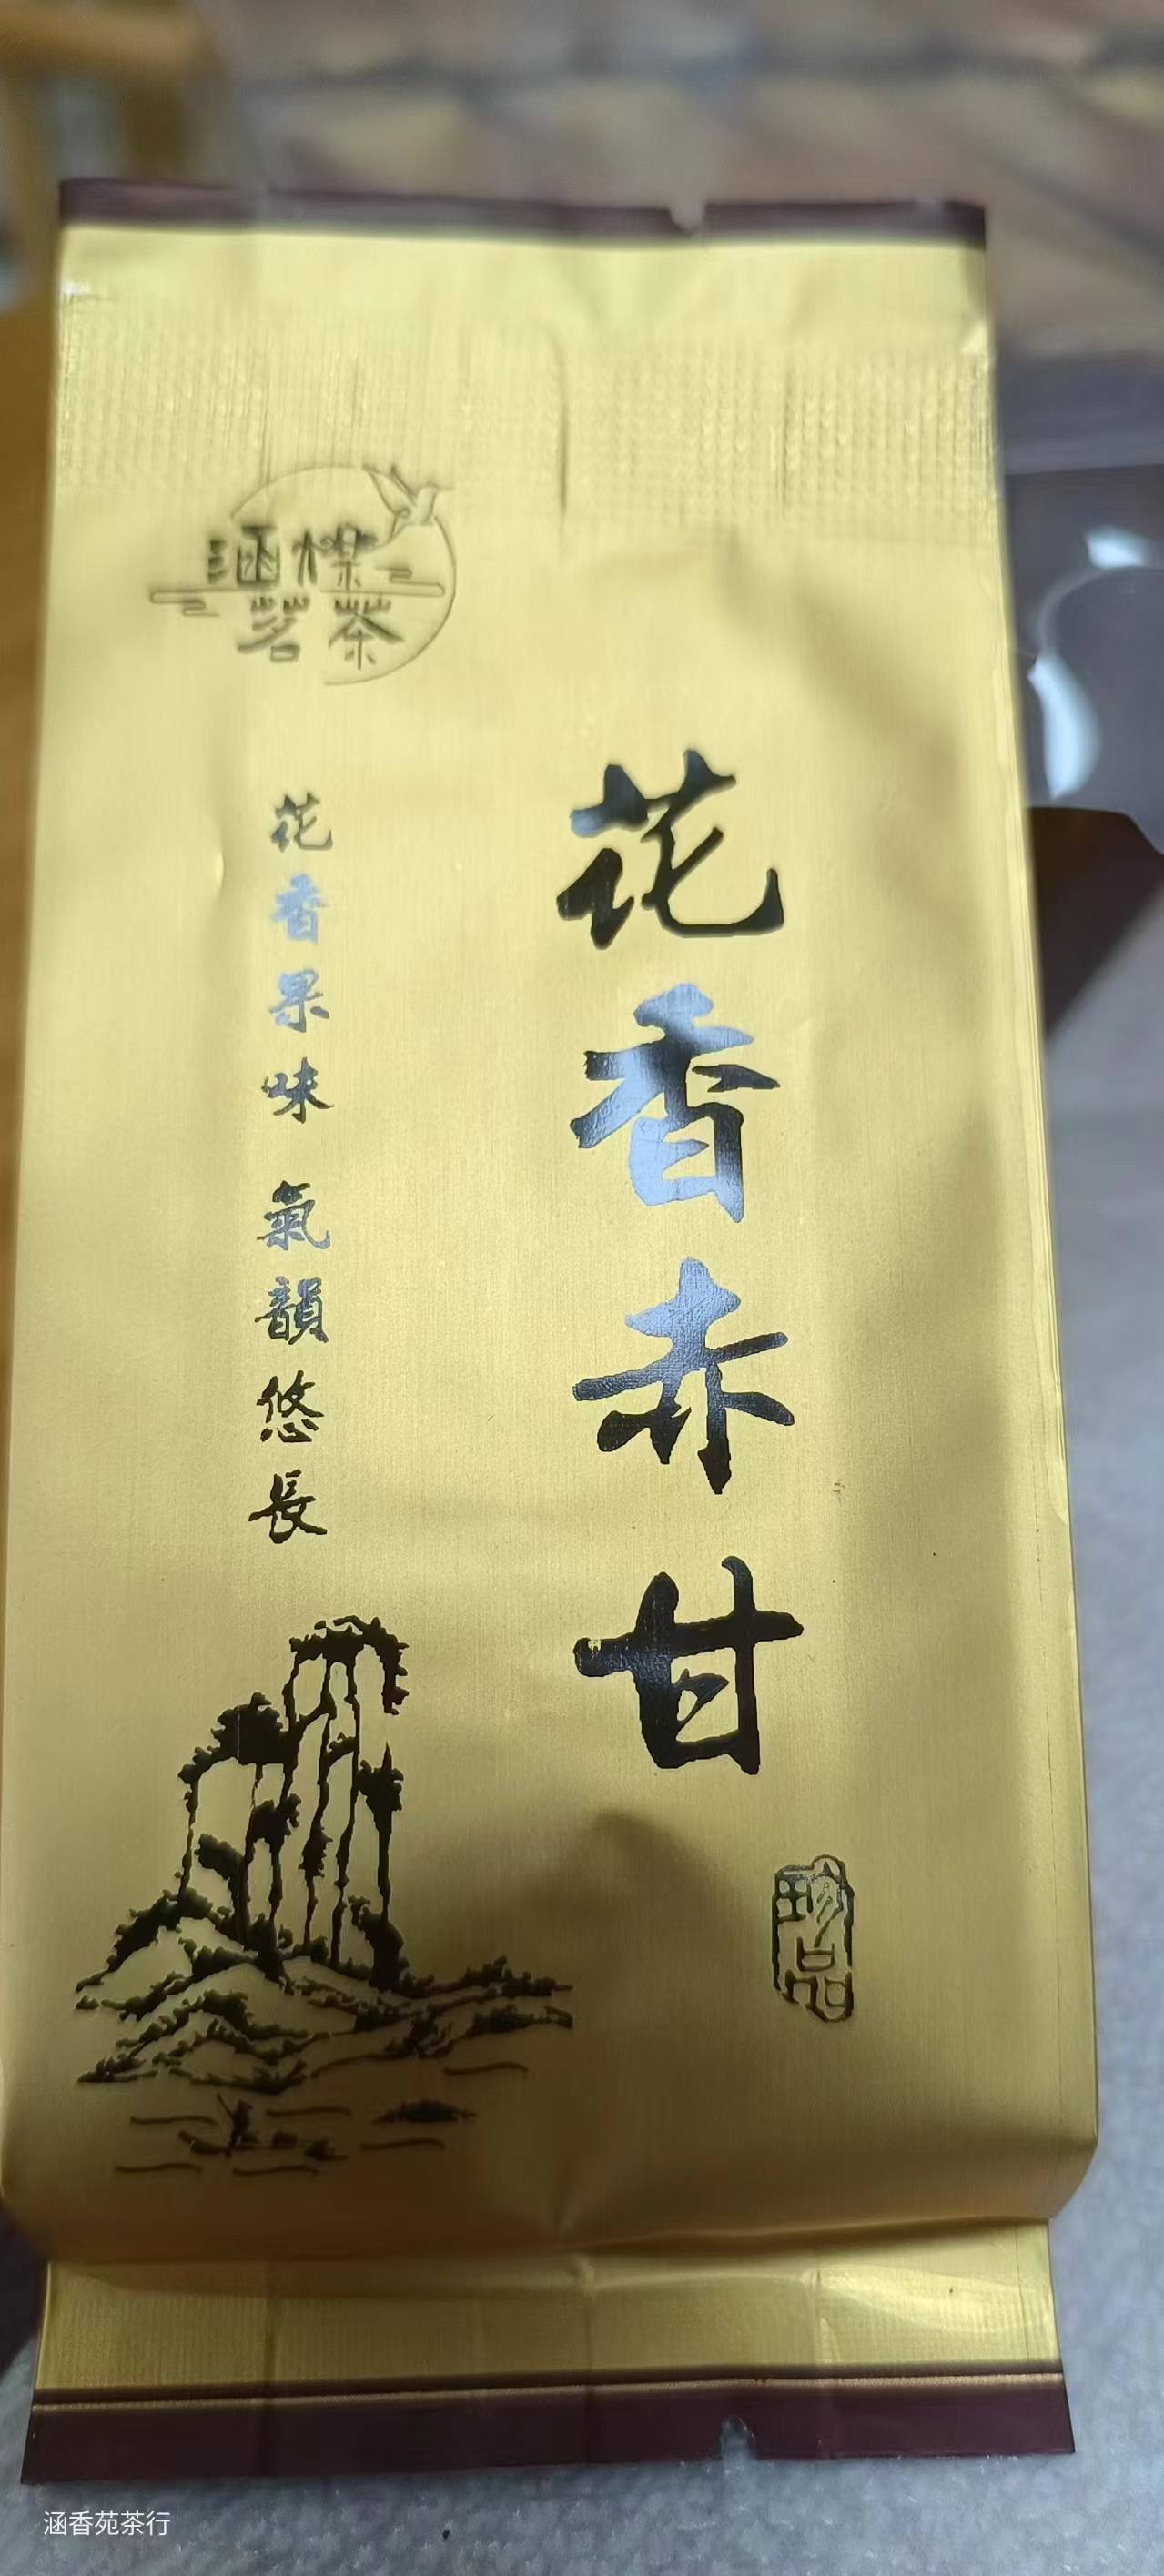 花香赤甘
珍品
花香果味 氣韻悠長
茗茶
涵香苑茶行